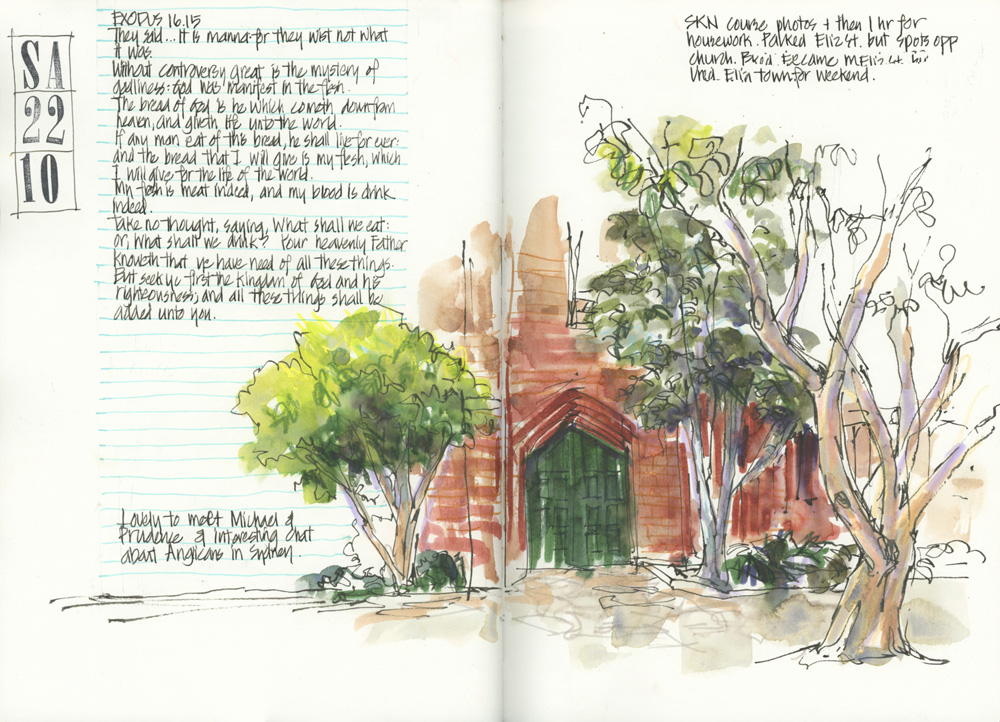 SA
22
10
EXODUS 16.15
They said... It is manna: for they wist not what
it was.
Without controversy great is the mystery of
godliness: God was manifest in the flesh.
The bread of God is he which cometh down from
heaven, and giveth life unto the world.
If any man eat of this bread, he shall live for ever:
and the bread that I will give is my flesh, which
I will give for the life of the world.
My flesh is meat indeed, and my blood is drink
indeed.
Take no thought, saying, What shall we eat:
or, What shall we drink? Your heavenly Father
knoweth that ye have need of all these things.
But seek ye first the Kingdom of God and his
righteousness; and all these things shall be
added unto you.
Lovely to meet Michael &
Pruddye & interesting chat
about Anglicans in Sydney.
SKN course photos + then 1 hr for
housework. Parked Eliz St. but spots opp
church. Became
Eli in town for weekend.